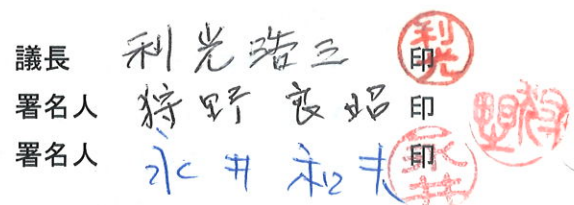 議長 利光浩三 印 利光
署名人 狩野良昭 印 狩野
署名人 永井和夫 印 永井